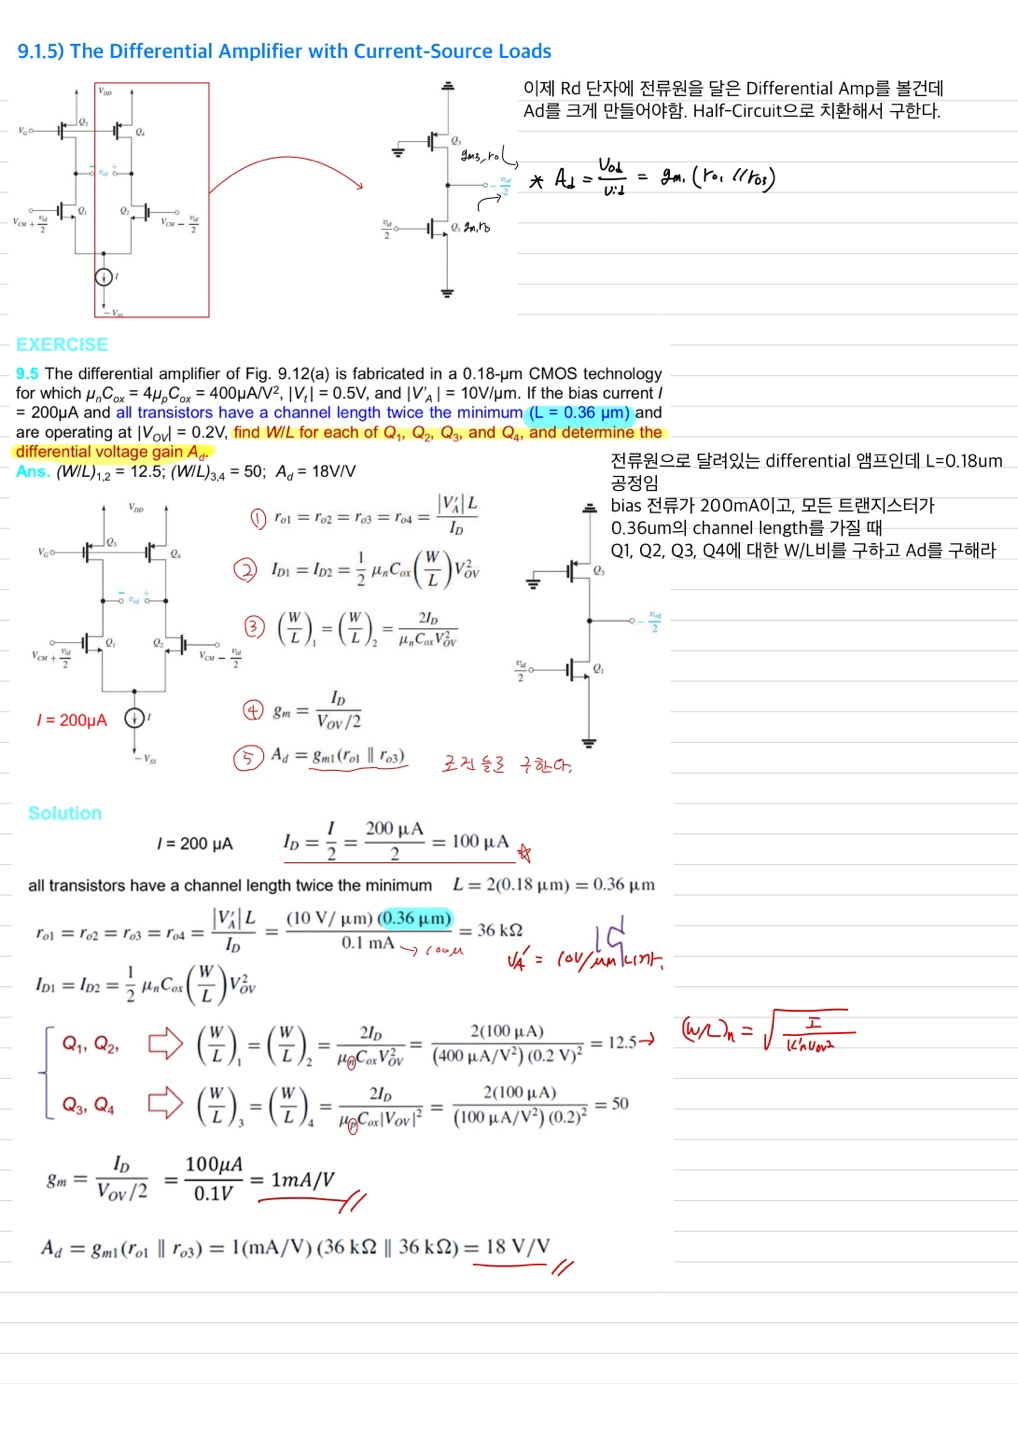 9.1.5) The Differential Amplifier with Current-Source Loads
이제 Rd 단자에 전류원을 달은 Differential Amp를 볼건데
Ad를 크게 만들어야함. Half-Circuit으로 치환해서 구한다.
V_DD
V_G
Q₃
Q₄
− v_od +
Q₁
Q₂
V_CM + v_id/2
V_CM − v_id/2
I
− V_SS
Q₃
gm3, ro
− v_od/2
v_id/2
Q₁ gm, ro
* Ad = Vod/Vid = gm₁ (ro₁ // ro₃)
EXERCISE
9.5 The differential amplifier of Fig. 9.12(a) is fabricated in a 0.18-μm CMOS technology
for which μₙCₒₓ = 4μₚCₒₓ = 400μA/V², |Vₜ| = 0.5V, and |V'_A| = 10V/μm. If the bias current I
= 200μA and all transistors have a channel length twice the minimum (L = 0.36 μm) and
are operating at |V_OV| = 0.2V, find W/L for each of Q₁, Q₂, Q₃, and Q₄, and determine the
differential voltage gain A_d.
Ans. (W/L)₁,₂ = 12.5; (W/L)₃,₄ = 50; A_d = 18V/V
전류원으로 달려있는 differential 앰프인데 L=0.18um
공정임
bias 전류가 200mA이고, 모든 트랜지스터가
0.36um의 channel length를 가질 때
Q1, Q2, Q3, Q4에 대한 W/L비를 구하고 Ad를 구해라
V_DD
V_G
Q₃
Q₄
− v_od +
Q₁
Q₂
V_CM + v_id/2
V_CM − v_id/2
I = 200μA
I
− V_SS
① r_o1 = r_o2 = r_o3 = r_o4 = |V'_A| L / I_D
② I_D1 = I_D2 = 1/2 μₙCₒₓ (W/L) V²_OV
③ (W/L)₁ = (W/L)₂ = 2I_D / μₙCₒₓV²_OV
④ g_m = I_D / V_OV/2
⑤ A_d = g_m1(r_o1 ∥ r_o3)
Q₃
− v_od/2
v_id/2
Q₁
Solution
I = 200 μA I_D = I/2 = 200 μA/2 = 100 μA
all transistors have a channel length twice the minimum L = 2(0.18 μm) = 0.36 μm
r_o1 = r_o2 = r_o3 = r_o4 = |V'_A| L / I_D = (10 V/ μm) (0.36 μm) / 0.1 mA = 36 kΩ
→ 100μ
V_A' = 10V/μm
I_D1 = I_D2 = 1/2 μₙCₒₓ (W/L) V²_OV
Q₁, Q₂, ⇨ (W/L)₁ = (W/L)₂ = 2I_D / μₙCₒₓV²_OV = 2(100 μA) / (400 μA/V²) (0.2 V)² = 12.5 → (W/L)n = √(I / k'n Vov²)
Q₃, Q₄ ⇨ (W/L)₃ = (W/L)₄ = 2I_D / μₚCₒₓ|V_OV|² = 2(100 μA) / (100 μA/V²) (0.2)² = 50
g_m = I_D / V_OV/2 = 100μA / 0.1V = 1mA/V
A_d = g_m1(r_o1 ∥ r_o3) = 1(mA/V) (36 kΩ ∥ 36 kΩ) = 18 V/V